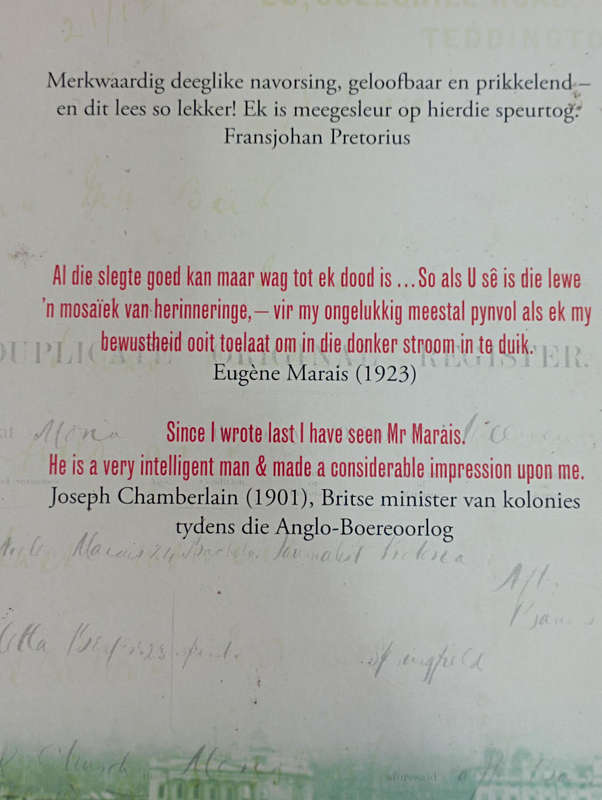 21/1
TEDDINGTO
Merkwaardig deeglike navorsing, geloofbaar en prikkelend –
en dit lees so lekker! Ek is meegesleur op hierdie speurtog.
Fransjohan Pretorius
Al die slegte goed kan maar wag tot ek dood is ... So als U sê is die lewe
'n mosaïek van herinneringe, – vir my ongelukkig meestal pynvol als ek my
bewustheid ooit toelaat om in die donker stroom in te duik.
DUPLICATE ORIGINAL REGISTER.
Eugène Marais (1923)
Mona
Since I wrote last I have seen Mr Marais.
He is a very intelligent man & made a considerable impression upon me.
Joseph Chamberlain (1901), Britse minister van kolonies
tydens die Anglo-Boereoorlog
Marais 24 Journalist
Church
aforesaid